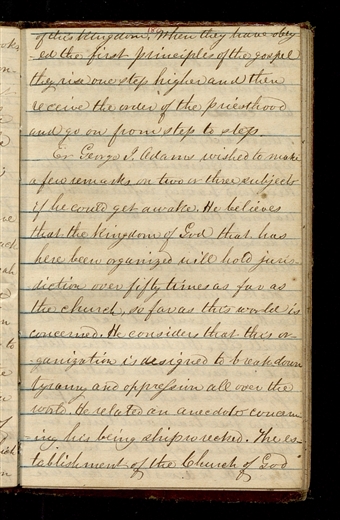 of this Kingdom. When they have obey
-ed the first principles of the gospel
they rise one step higher and then
receive the order of the priesthood
and go on from step to step.
Er George J. Adams wished to make
a few remarks on two or three subjects
if he could get awake. He believes
that the kingdom of God that has
here been organized will hold juris-
diction over fifty times as far as
the church, so far as this world is
concerned. He considers that this or-
-ganization is designed to break down
tyranny and oppression all over the
world. He related an anecdote concern
-ing his being shipwrecked. The es-
tablishment of the Church of God